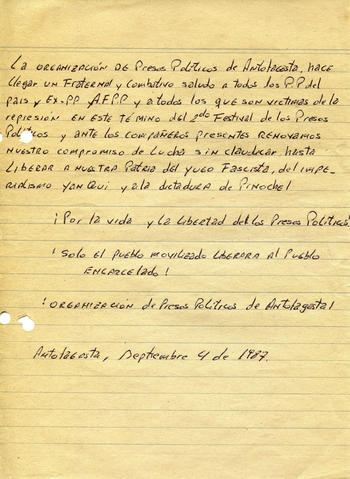 La ORGANIZACIÓN DE Presos Políticos de Antofagasta, hace
llegar un Fraternal y Combativo saludo a todos los P.P del
pais y Ex-PP AFPP y a todos los que son victimas de la
represión EN ESTE TÉMINO del 2do Festival de los Presos
Políticos y ante los COMPAÑEROS PRESENTES RENOVAMOS
NUESTRO COMPROMISO de Lucha SIN claudicar hasta
LIBERAR A NUESTRA Patria del YUGO Fascista, del IMPE-
RIALISMO YANQUI y a la dictadura de PINOCHET
¡Por la vida y la LIBERTAD de los Presos Políticos!
¡Solo El pueblo movilizado LIBERARA Al PUEBLO
ENCARCELADO!
¡ORGANIZACIÓN de Presos Políticos de Antofagasta!
Antofagasta, Septiembre 4 de 1987.